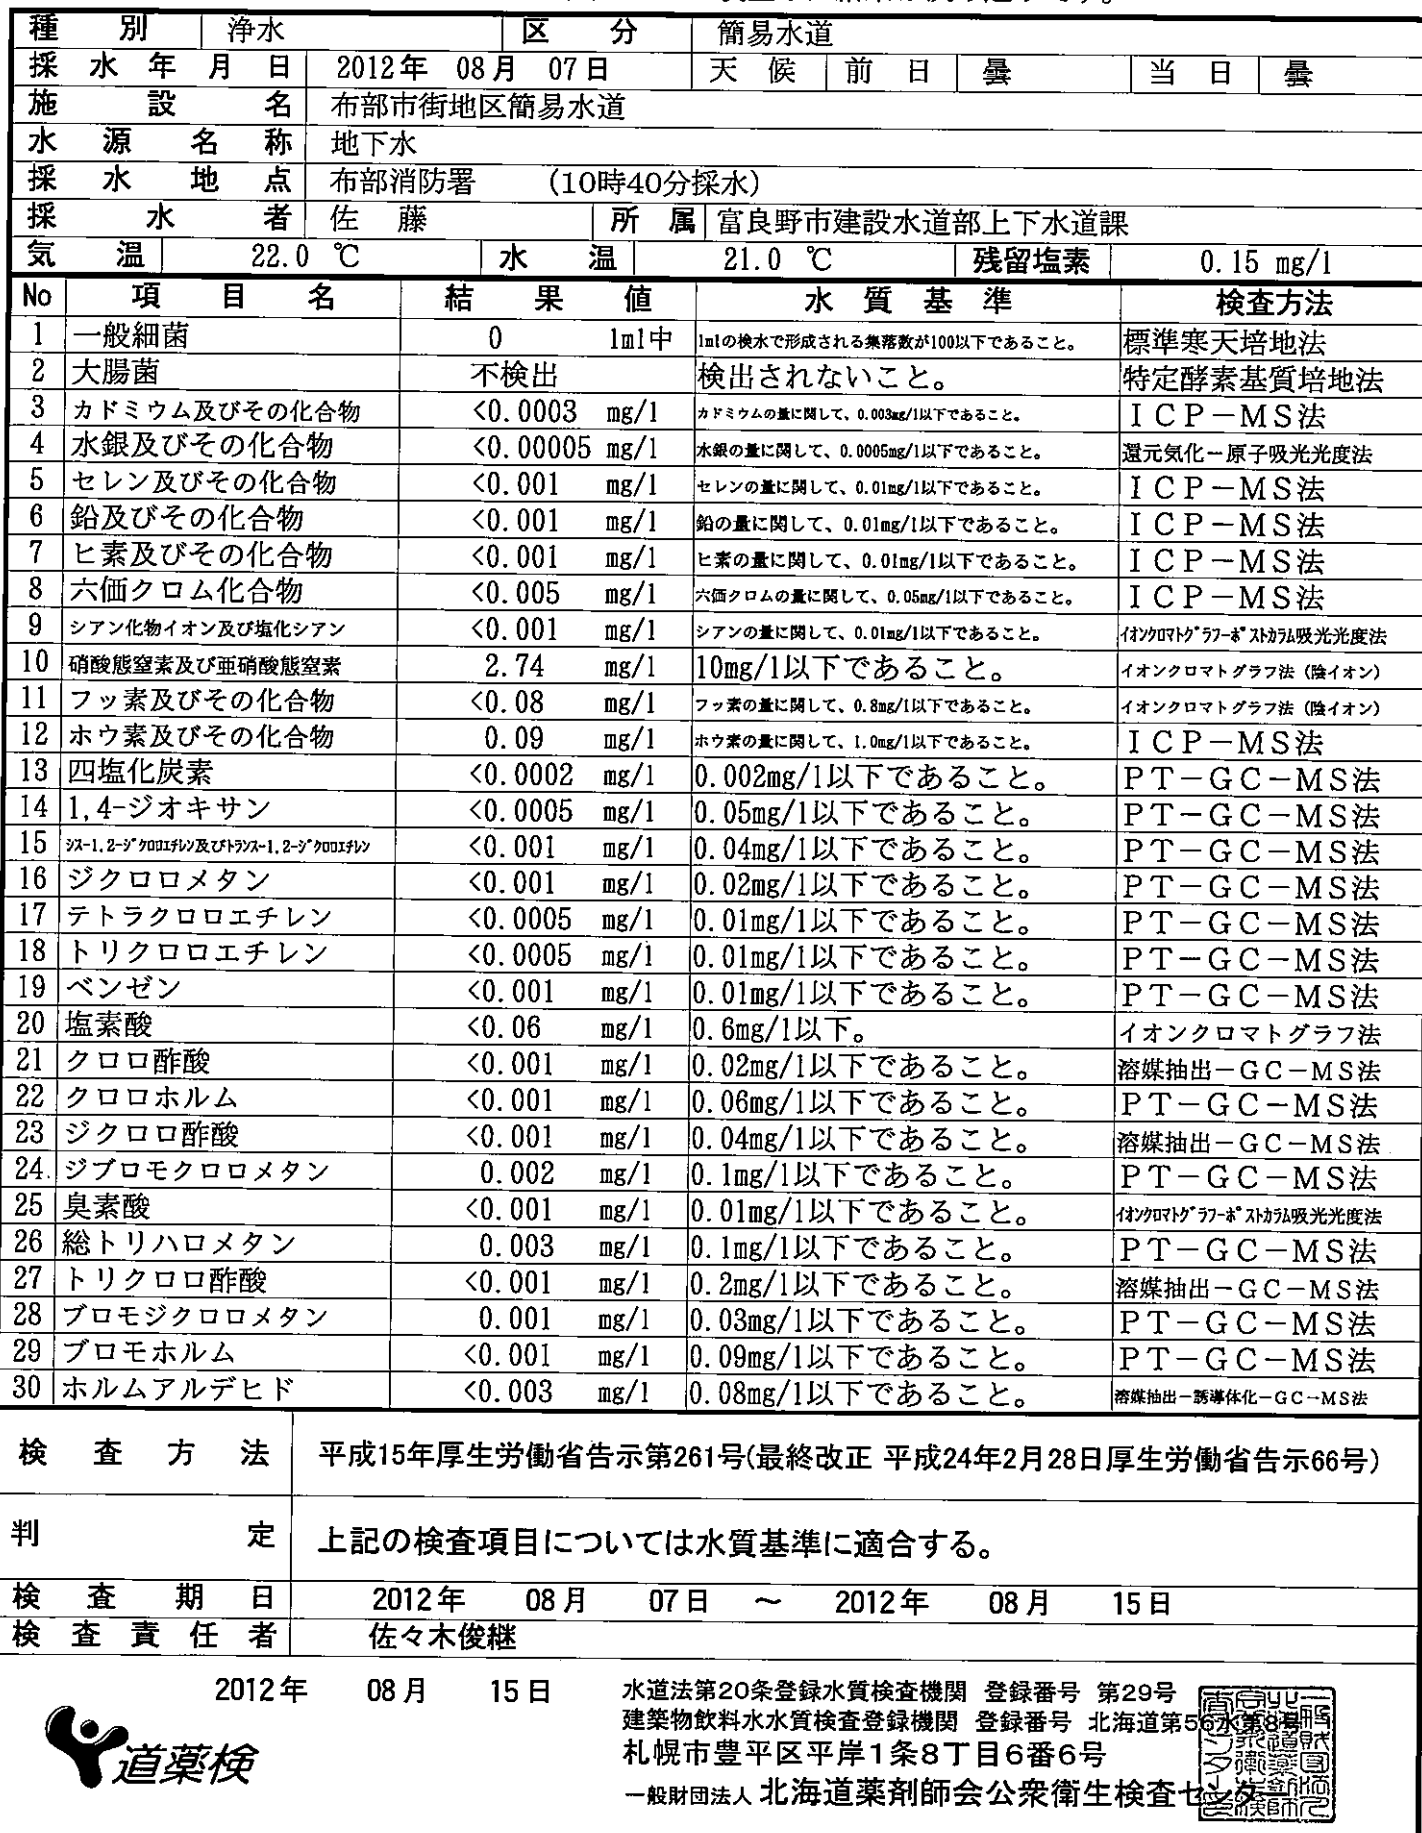 種別 浄水 区分 簡易水道
採水年月日 2012年 08月 07日 天候 前日 曇 当日 曇
施設名 布部市街地区簡易水道
水源名称 地下水
採水地点 布部消防署 (10時40分採水)
採水者 佐藤 所属 富良野市建設水道部上下水道課
気温 22.0 ℃ 水温 21.0 ℃ 残留塩素 0.15 mg/l
No 項目名 結果値 水質基準 検査方法
1 一般細菌 0 1ml中 1mlの検水で形成される集落数が100以下であること。 標準寒天培地法
2 大腸菌 不検出 検出されないこと。 特定酵素基質培地法
3 カドミウム及びその化合物 <0.0003 mg/l カドミウムの量に関して、0.003mg/l以下であること。 ICP-MS法
4 水銀及びその化合物 <0.00005 mg/l 水銀の量に関して、0.0005mg/l以下であること。 還元気化-原子吸光光度法
5 セレン及びその化合物 <0.001 mg/l セレンの量に関して、0.01mg/l以下であること。 ICP-MS法
6 鉛及びその化合物 <0.001 mg/l 鉛の量に関して、0.01mg/l以下であること。 ICP-MS法
7 ヒ素及びその化合物 <0.001 mg/l ヒ素の量に関して、0.01mg/l以下であること。 ICP-MS法
8 六価クロム化合物 <0.005 mg/l 六価クロムの量に関して、0.05mg/l以下であること。 ICP-MS法
9 シアン化物イオン及び塩化シアン <0.001 mg/l シアンの量に関して、0.01mg/l以下であること。 ｲｵﾝｸﾛﾏﾄｸﾞﾗﾌ-ﾎﾟｽﾄｶﾗﾑ吸光光度法
10 硝酸態窒素及び亜硝酸態窒素 2.74 mg/l 10mg/l以下であること。 イオンクロマトグラフ法(陰イオン)
11 フッ素及びその化合物 <0.08 mg/l フッ素の量に関して、0.8mg/l以下であること。 イオンクロマトグラフ法(陰イオン)
12 ホウ素及びその化合物 0.09 mg/l ホウ素の量に関して、1.0mg/l以下であること。 ICP-MS法
13 四塩化炭素 <0.0002 mg/l 0.002mg/l以下であること。 PT-GC-MS法
14 1,4-ジオキサン <0.0005 mg/l 0.05mg/l以下であること。 PT-GC-MS法
15 ｼｽ-1,2-ｼﾞｸﾛﾛｴﾁﾚﾝ及びﾄﾗﾝｽ-1,2-ｼﾞｸﾛﾛｴﾁﾚﾝ <0.001 mg/l 0.04mg/l以下であること。 PT-GC-MS法
16 ジクロロメタン <0.001 mg/l 0.02mg/l以下であること。 PT-GC-MS法
17 テトラクロロエチレン <0.0005 mg/l 0.01mg/l以下であること。 PT-GC-MS法
18 トリクロロエチレン <0.0005 mg/l 0.01mg/l以下であること。 PT-GC-MS法
19 ベンゼン <0.001 mg/l 0.01mg/l以下であること。 PT-GC-MS法
20 塩素酸 <0.06 mg/l 0.6mg/l以下。 イオンクロマトグラフ法
21 クロロ酢酸 <0.001 mg/l 0.02mg/l以下であること。 溶媒抽出-GC-MS法
22 クロロホルム <0.001 mg/l 0.06mg/l以下であること。 PT-GC-MS法
23 ジクロロ酢酸 <0.001 mg/l 0.04mg/l以下であること。 溶媒抽出-GC-MS法
24 ジブロモクロロメタン 0.002 mg/l 0.1mg/l以下であること。 PT-GC-MS法
25 臭素酸 <0.001 mg/l 0.01mg/l以下であること。 ｲｵﾝｸﾛﾏﾄｸﾞﾗﾌ-ﾎﾟｽﾄｶﾗﾑ吸光光度法
26 総トリハロメタン 0.003 mg/l 0.1mg/l以下であること。 PT-GC-MS法
27 トリクロロ酢酸 <0.001 mg/l 0.2mg/l以下であること。 溶媒抽出-GC-MS法
28 ブロモジクロロメタン 0.001 mg/l 0.03mg/l以下であること。 PT-GC-MS法
29 ブロモホルム <0.001 mg/l 0.09mg/l以下であること。 PT-GC-MS法
30 ホルムアルデヒド <0.003 mg/l 0.08mg/l以下であること。 溶媒抽出-誘導体化-GC-MS法
検査方法 平成15年厚生労働省告示第261号(最終改正 平成24年2月28日厚生労働省告示66号)
判定 上記の検査項目については水質基準に適合する。
検査期日 2012年 08月 07日 ～ 2012年 08月 15日
検査責任者 佐々木俊継
2012年 08月 15日
水道法第20条登録水質検査機関 登録番号 第29号
建築物飲料水水質検査登録機関 登録番号 北海道第56水第8号
札幌市豊平区平岸1条8丁目6番6号
一般財団法人 北海道薬剤師会公衆衛生検査センター
道薬検